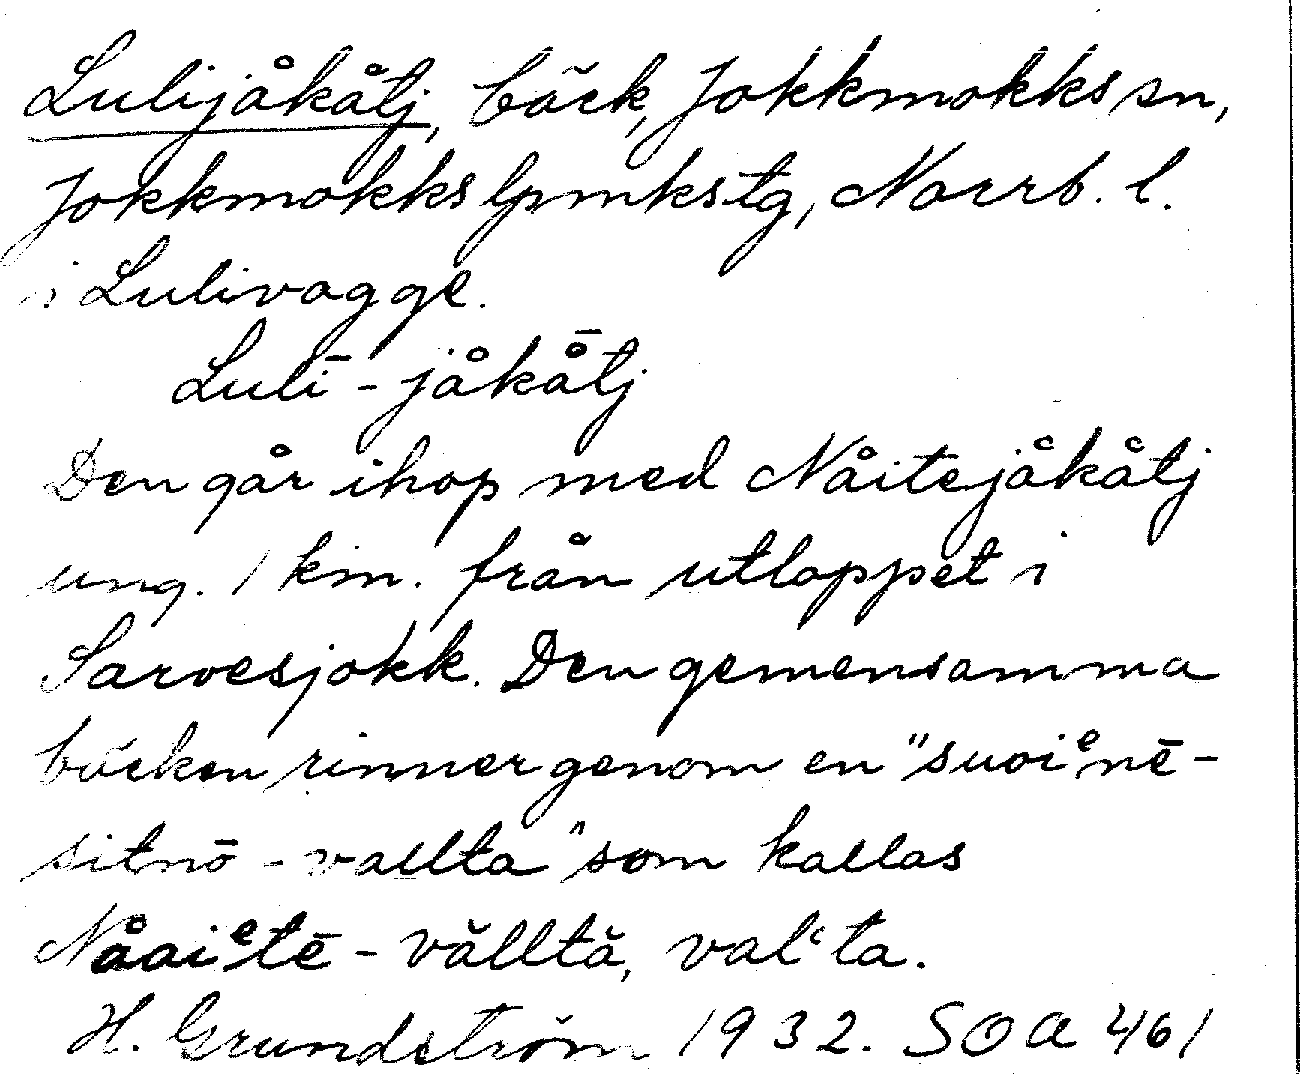 Lulijåkåtj, bäck, Jokkmokks sn,
Jokkmokks lpmkstg, Norrb. l.
i Lulivagge.
Lulī - jåkå̄tj
Den går ihop med Nåitejåkåtj
ung. 1 km. från utloppet i
Sarvesjokk. Den gemensamma
bäcken rinner genom en "suoiᵉnē-
sitnō - vallta" som kallas
Nåaiᵉtē - vălltă, valʿta.
H. Grundström 1932. SOA 461